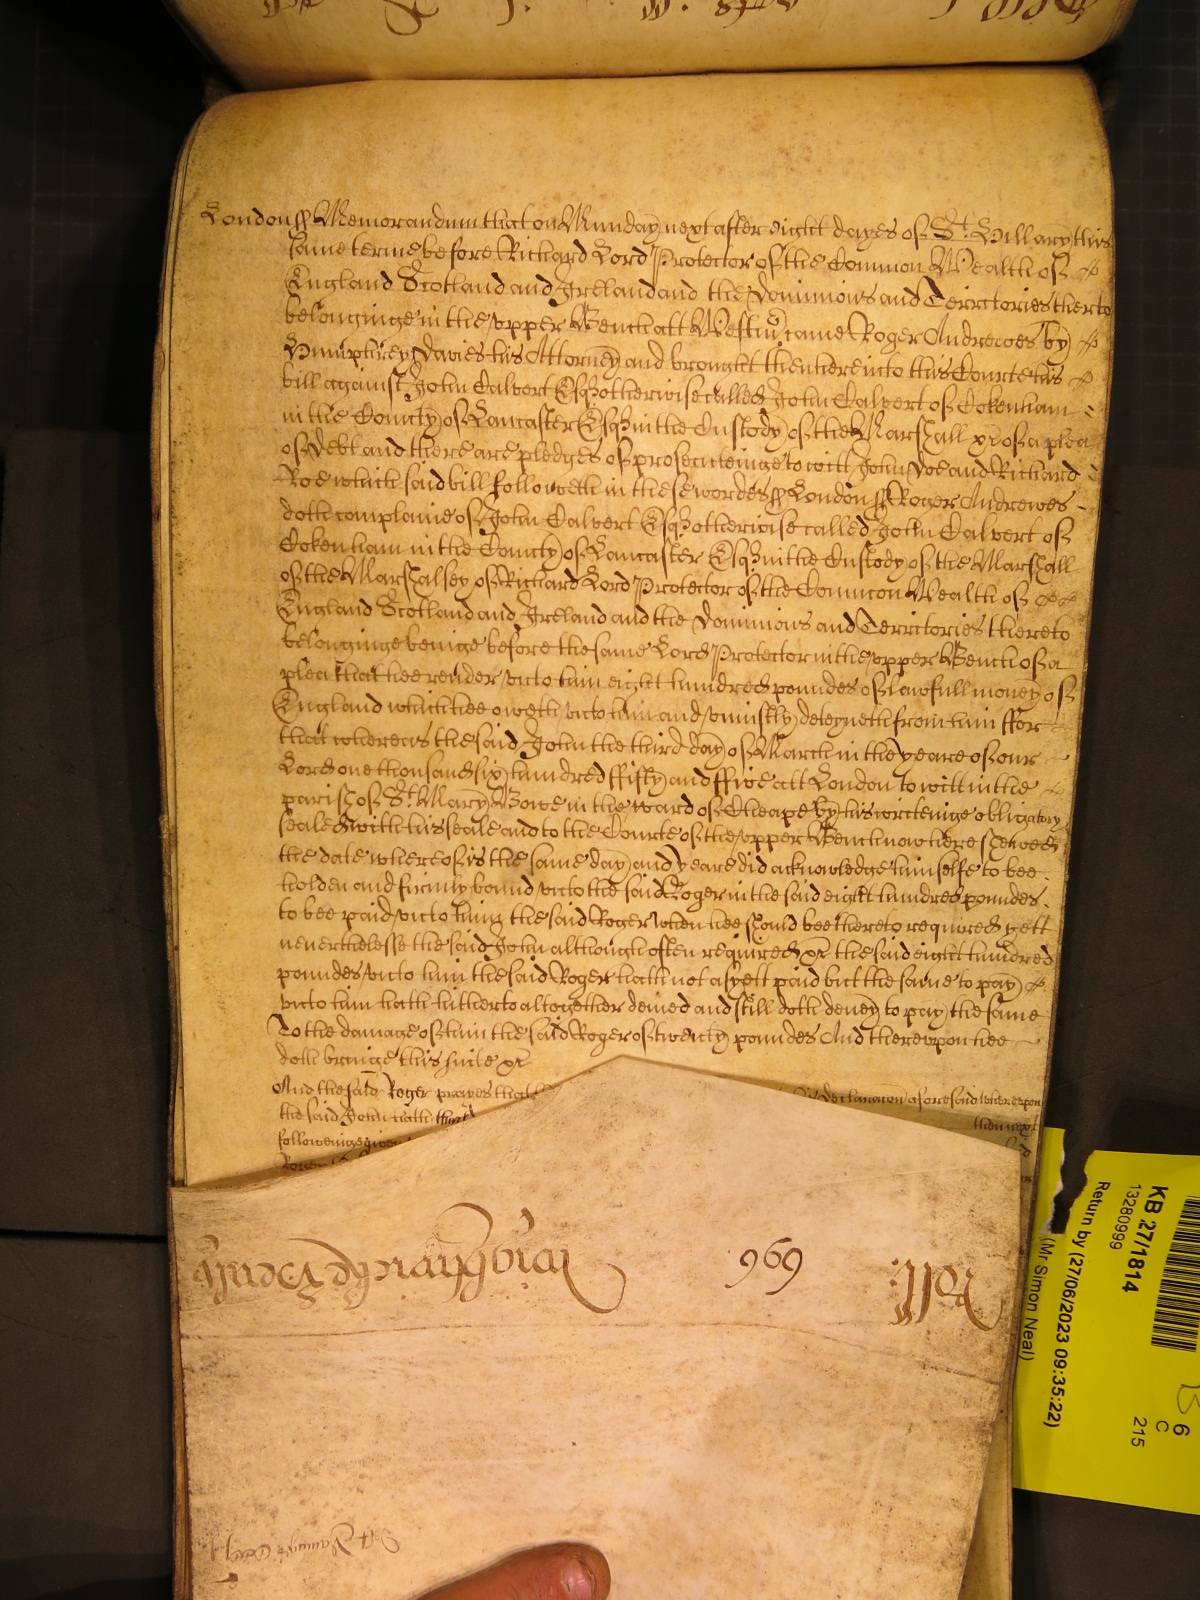 London ss Memorandum that on Munday next after eight dayes of St. Hillary this
same terme before Richard Lord Protector of the Common Wealth of
England Scotland and Ireland and the Dominions and Territories therto
belonginge in the upper Bench att Westm came Roger Andrewes by
Humphrey Davies his Attorney and brought then here into this Courte his
bill against John Calvert Esqr otherwise called John Calvert of Cokenham
in the County of Lancaster Esqr in the Custody of the Marshall &c of a plea
of Debt and there are pledges of prosecuteinge to witt John Doe and Richard
Roe which said bill followeth in these wordes ss London ss Roger Andrewes
doth complaine of John Calvert Esqr otherwise called John Calvert of
Cokenham in the County of Lancaster Esqr in the Custody of the Marshall
of the Marshalsey of Richard Lord Protector of the Common Wealth of
England Scotland and Ireland and the Dominions and Territories thereto
belonginge beinge before the same Lord Protector in the upper Bench of a
plea that hee render unto him eight hundred poundes of lawfull money of
England which hee oweth unto him and uniustly deteyneth from him ffor
that whereas the said John the third day of March in the yeare of our
Lord one thousand six hundred ffifty and ffive att London to witt in the
parish of St. Mary Bowe in the ward of Cheape by his writeinge obligatory
sealed with his seale and to the Courte of the upper Bench now here shewed
the date whereof is the same day and yeare did acknowledge himselfe to bee
holden and firmly bound unto the said Roger in the said eight hundred poundes
to bee paid unto him the said Roger when hee should bee thereto required yett
neverthelesse the said John although often required &c the said eight hundred
poundes unto him the said Roger hath not as yett paid but the same to pay
unto him hath hitherto altogether denied and still doth deney to pay the same
To the damage of him the said Roger of twenty poundes And thereupon hee
doth bringe this suite &c
And the said Roger prayes that declaracon aforesaid whereupon
the said John hath then next
followeinge given
Roll 969
KB 27/1814
13280999
Return by (27/06/2023 09:35:22)
(Mr Simon Neal)
6
C
215